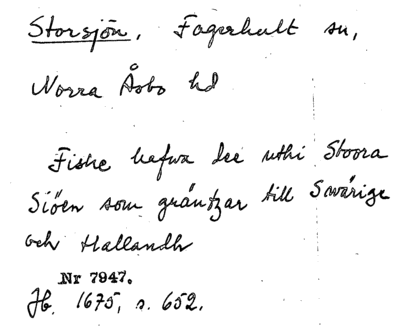 Storsjön, Fagerhult sn,
Norra Åsbo hd
Fiske hafwa dee uthi Stoora
Siöen som gräntzar till Swärige
och Hallandh
Nr 7947.
Jb. 1675, s. 652.